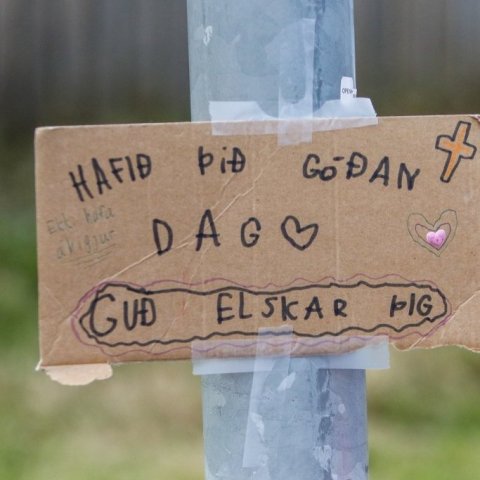 HAFIÐ ÞIÐ GÓÐAN
DAG
Ekki hafa
GUÐ ELSKAR ÞIG